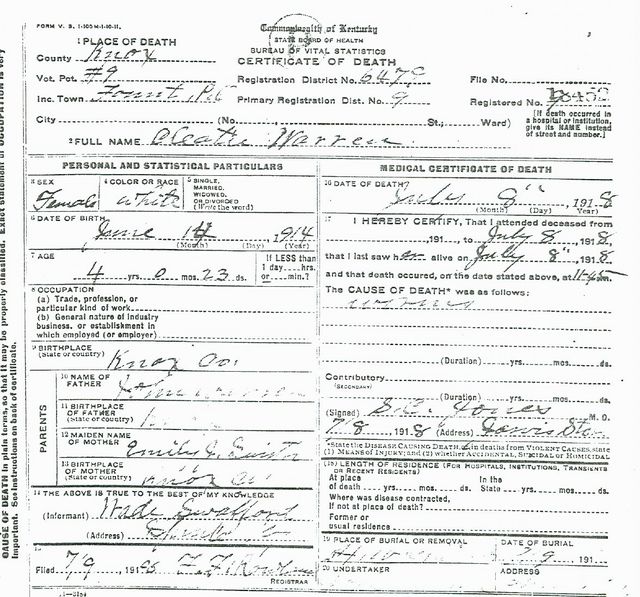 FORM V. S. 1-
Commonwealth of Kentucky
STATE BOARD OF HEALTH
BUREAU OF VITAL STATISTICS
CERTIFICATE OF DEATH
1 PLACE OF DEATH
County Knox
Vot. Pct. #9
Inc. Town Fount,
Registration District No.
Primary Registration Dist. No. 9
File No.
Registered No.
City (No. St.; Ward)
[If death occurred in a hospital or institution, give its NAME instead of street and number.]
2 FULL NAME Cleatie Warren
PERSONAL AND STATISTICAL PARTICULARS
3 SEX Female
4 COLOR OR RACE White
5 SINGLE, MARRIED, WIDOWED, OR DIVORCED (Write the word)
6 DATE OF BIRTH June 14 1914
(Month) (Day) (Year)
7 AGE 4 yrs. 0 mos. 23 ds.
If LESS than 1 day...hrs. or...min.?
8 OCCUPATION
(a) Trade, profession, or particular kind of work
(b) General nature of industry business, or establishment in which employed (or employer)
9 BIRTHPLACE (State or country) Knox Co.
PARENTS
10 NAME OF FATHER
11 BIRTHPLACE OF FATHER (State or country)
12 MAIDEN NAME OF MOTHER Emily
13 BIRTHPLACE OF MOTHER (State or country) Knox Co.
14 THE ABOVE IS TRUE TO THE BEST OF MY KNOWLEDGE
(Informant) Wade Swafford
(Address)
15
Filed 7/9 191
REGISTRAR
MEDICAL CERTIFICATE OF DEATH
16 DATE OF DEATH July 8" 1918
(Month) (Day) Year)
17 I HEREBY CERTIFY, That I attended deceased from
191 to July 8 1918,
that I last saw h alive on July 8" 1918,
and that death occured, on the date stated above, at 11-45 m.
The CAUSE OF DEATH* was as follows:
worms
(Duration) yrs. mos. ds.
Contributory
(SECONDARY)
(Duration) yrs. mos. ds.
(Signed) Jones M.D.
7/8 1918 (Address)
*State the DISEASE CAUSING DEATH, or, in deaths from VIOLENT CAUSES, state (1) MEANS OF INJURY; and (2) whether ACCIDENTAL, SUICIDAL or HOMICIDAL
18 LENGTH OF RESIDENCE (FOR HOSPITALS, INSTITUTIONS, TRANSIENTS OR RECENT RESIDENTS)
At place of death yrs. mos. ds. In the State yrs. mos. ds.
Where was disease contracted, If not at place of death?
Former or usual residence
19 PLACE OF BURIAL OR REMOVAL
DATE OF BURIAL
191
20 UNDERTAKER
ADDRESS
CAUSE OF DEATH in plain terms, so that it may be properly classified. Exact statement of OCCUPATION is very
important. See instructions on back of certificate.